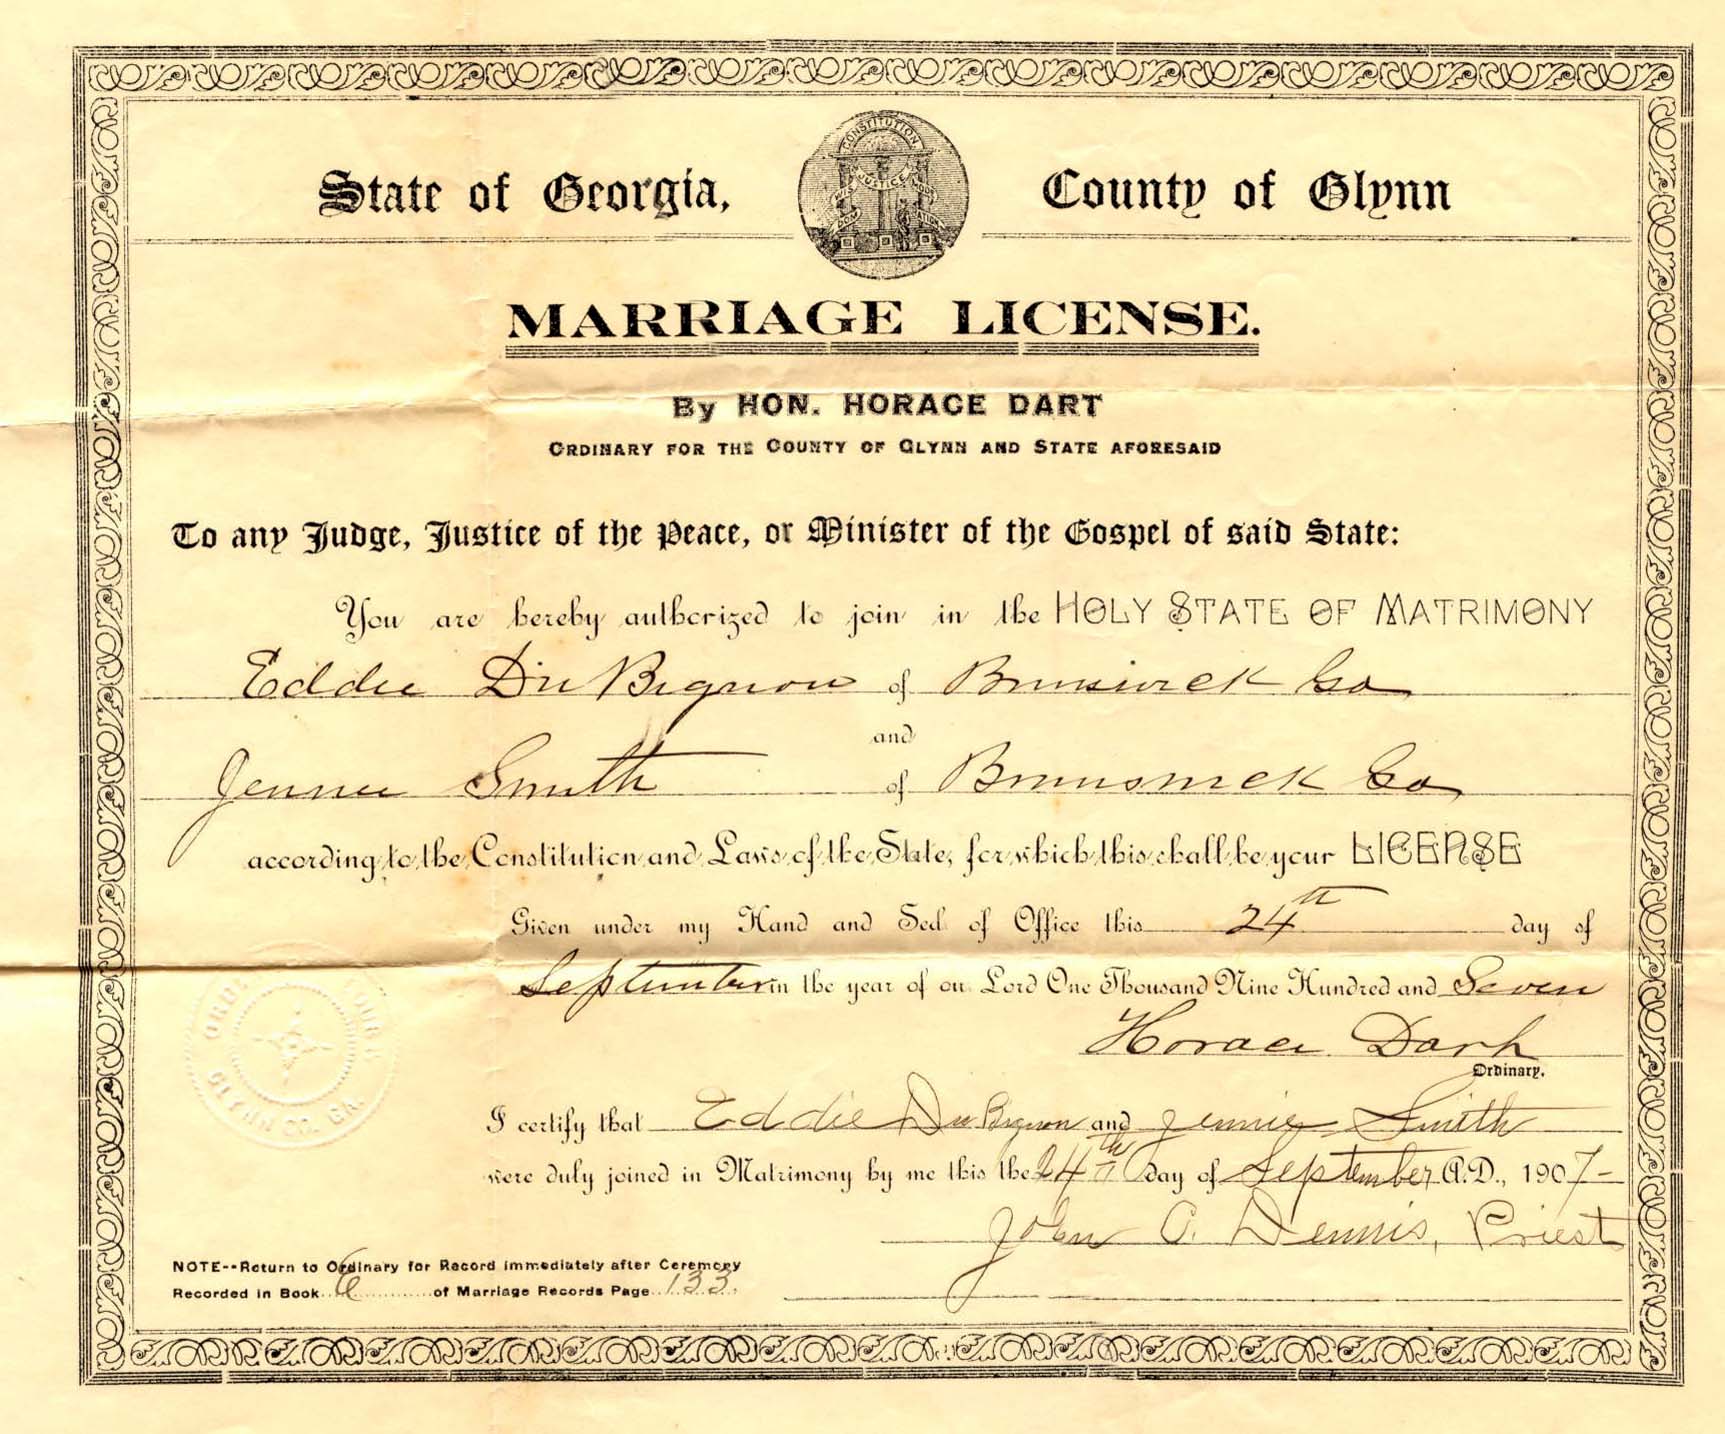 State of Georgia, County of Glynn
CONSTITUTION
JUSTICE
WISDOM MODERATION
MARRIAGE LICENSE.
By HON. HORACE DART
ORDINARY FOR THE COUNTY OF GLYNN AND STATE AFORESAID
To any Judge, Justice of the Peace, or Minister of the Gospel of said State:
You are hereby authorized to join in the HOLY STATE OF MATRIMONY
Eddie DuBignon of Brunswick Ga
and
Jennie Smith of Brunswick Ga
according to the Constitution and Laws of the State, for which this shall be your LICENSE
Given under my Hand and Seal of Office this 24th day of
September in the year of our Lord One Thousand Nine Hundred and Seven
Horace Dart
Ordinary.
GLYNN CO. GA.
I certify that Eddie DuBignon and Jennie Smith
were duly joined in Matrimony by me this the 24th day of September A.D., 1907-
John C. Dennis, Priest
NOTE--Return to Ordinary for Record immediately after Ceremony
Recorded in Book of Marriage Records Page 133.